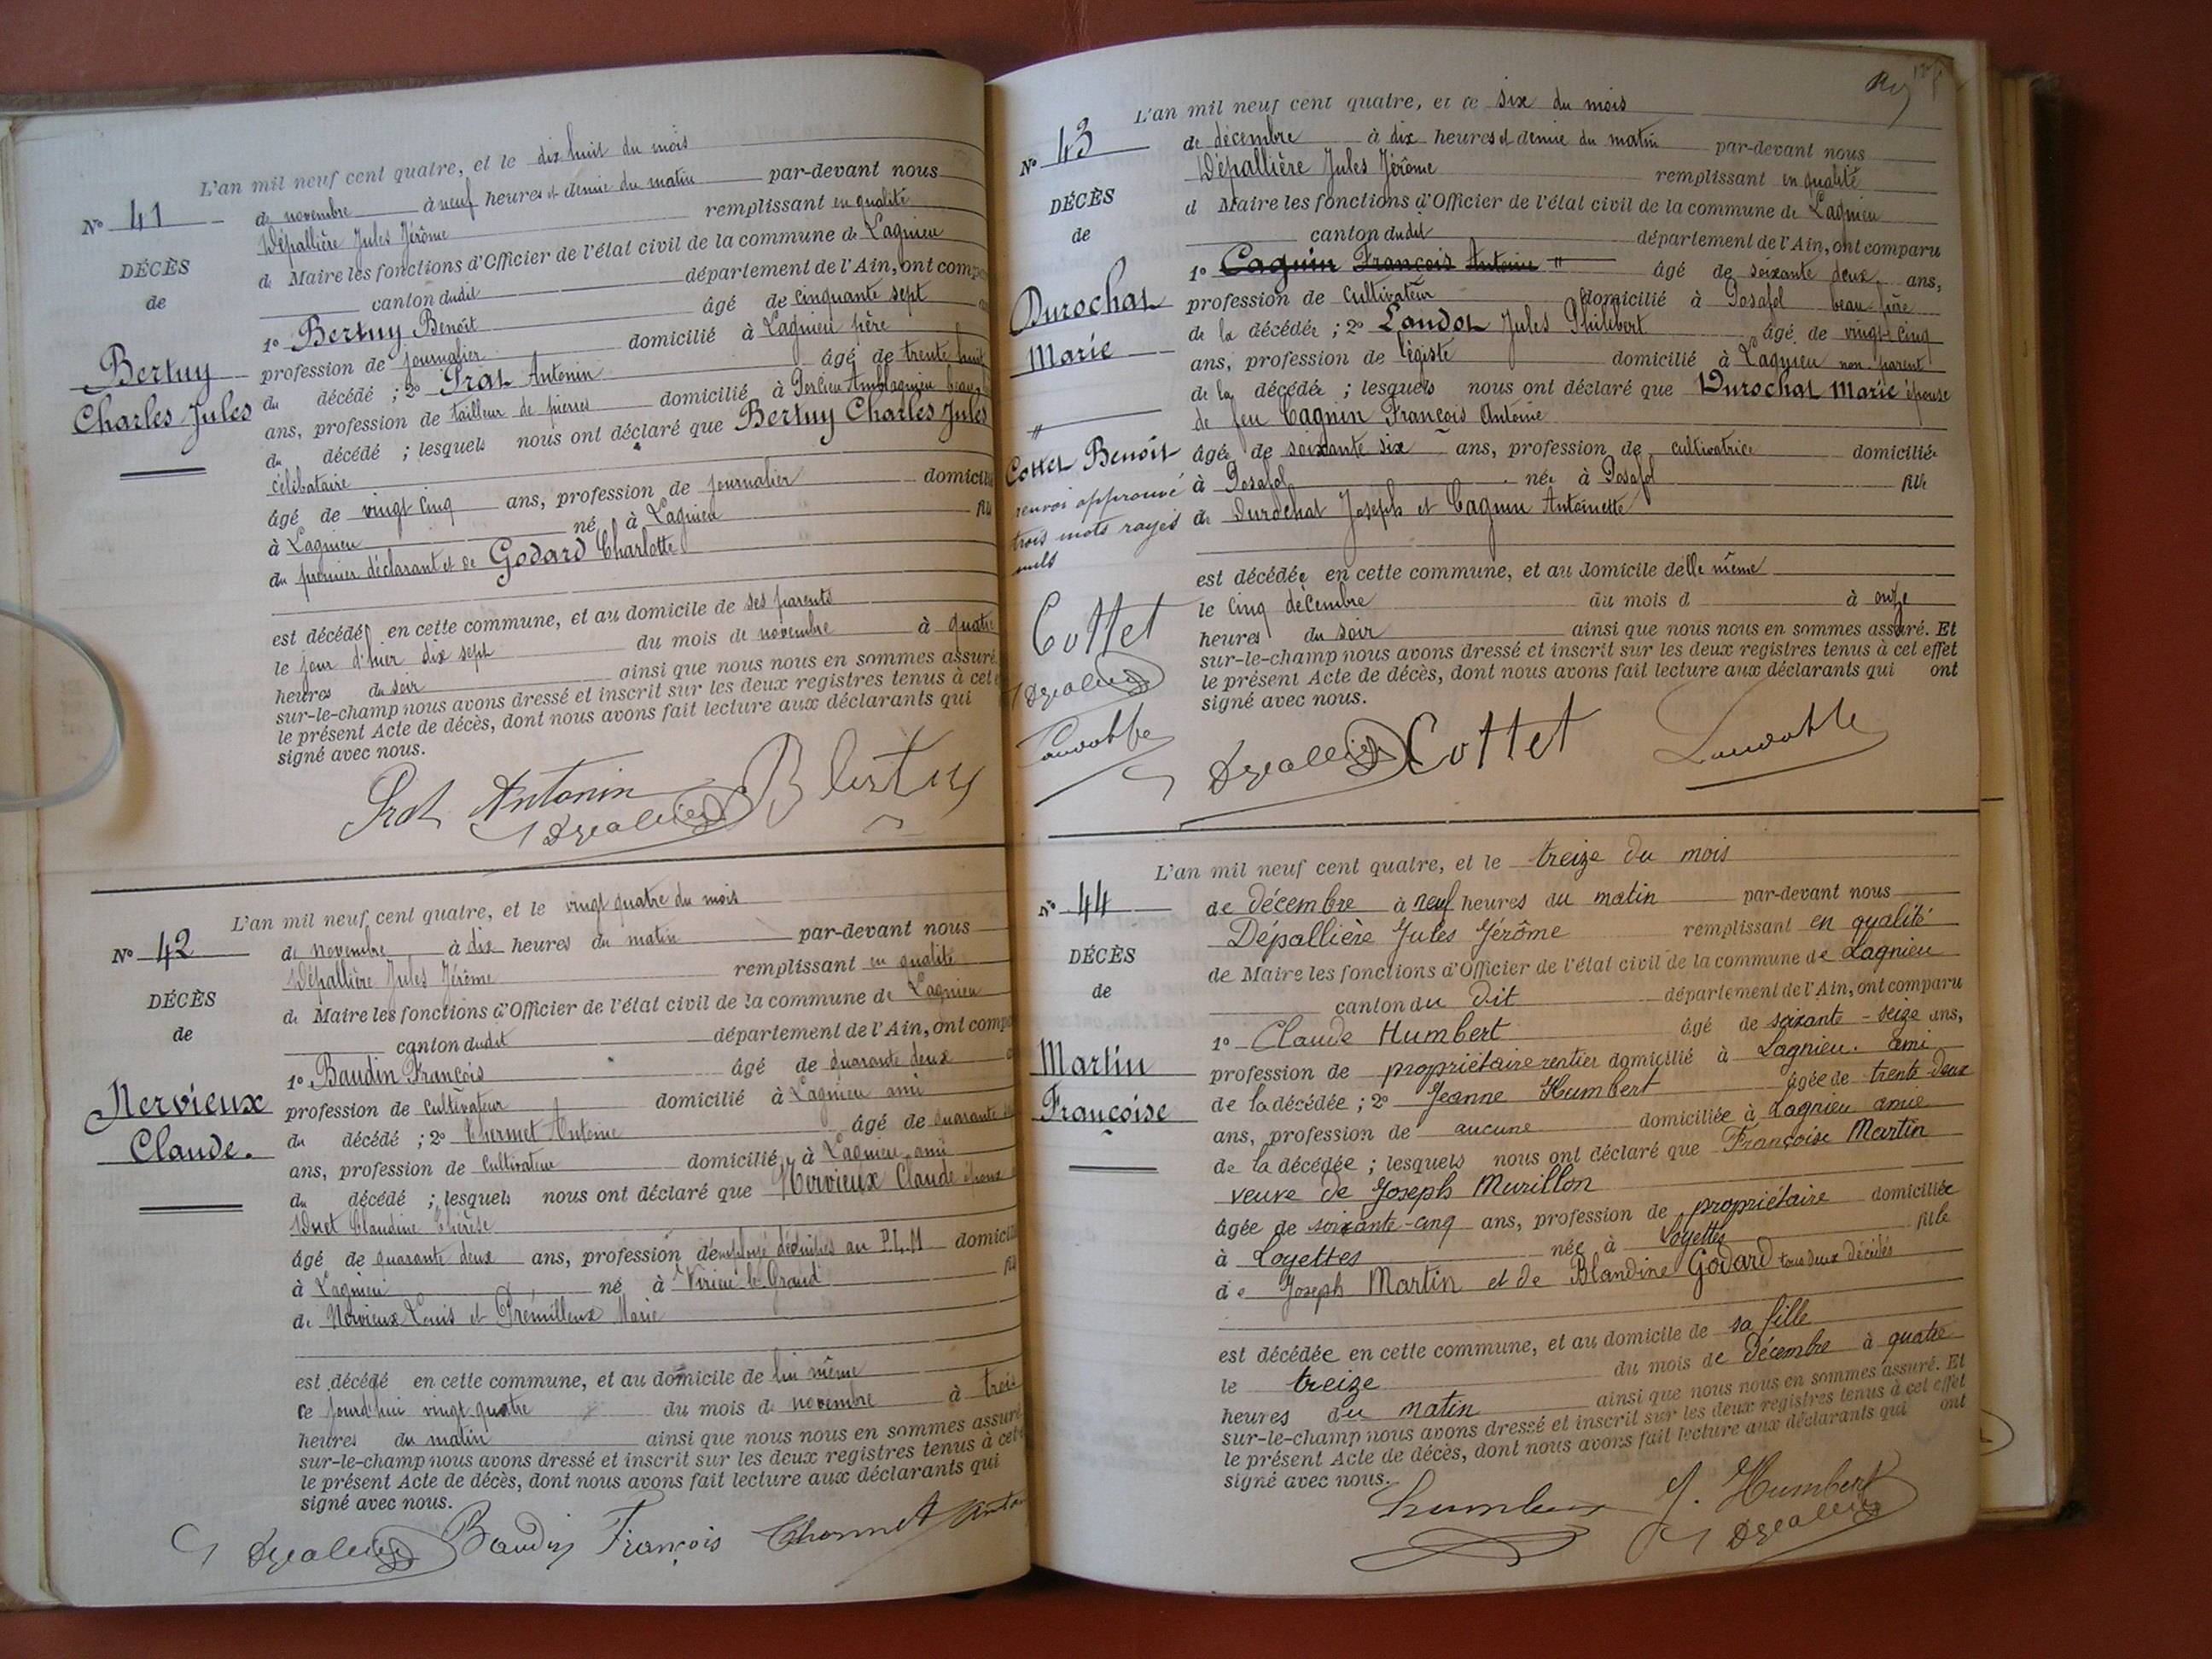 L'an mil neuf cent quatre, et le dix huit du mois
N° 41
de novembre à neuf heures et demie du matin par-devant nous
Dépallière Jules Jérôme remplissant en qualité
DÉCÈS
de Maire les fonctions d'Officier de l'état civil de la commune de Lagnieu
de
canton dudit département de l'Ain, ont comp
1° Bertuy Benoît âgé de cinquante sept
Bertuy
profession de journalier domicilié à Lagnieu père
Charles Jules
du décédé ; 2° Prat Antonin âgé de trente huit
ans, profession de tailleur de pierres domicilié à
du décédé ; lesquels nous ont déclaré que Bertuy Charles Jules
célibataire
âgé de vingt cinq ans, profession de journalier domicilié
à Lagnieu né à Lagnieu fils
du premier déclarant et de Godard Charlotte
est décédé en cette commune, et au domicile de ses parents
le jour d'hier dix sept du mois de novembre à quatre
heures du soir ainsi que nous nous en sommes assuré.
sur-le-champ nous avons dressé et inscrit sur les deux registres tenus à cet
le présent Acte de décès, dont nous avons fait lecture aux déclarants qui
signé avec nous.
Prat Antonin
L'an mil neuf cent quatre, et le vingt quatre du mois
N° 42
de novembre à dix heures du matin par-devant nous
Dépallière Jules Jérôme remplissant en qualité
DÉCÈS
de Maire les fonctions d'Officier de l'état civil de la commune de Lagnieu
de
canton dudit département de l'Ain, ont comp
1° Baudin François âgé de quarante deux
Nervieux
profession de cultivateur domicilié à Lagnieu ami
Claude.
du décédé ; 2° Chermet Antoine âgé de quarante
ans, profession de cultivateur domicilié à Lagnieu ami
du décédé ; lesquels nous ont déclaré que Nervieux Claude époux
Claudine Thérèse
âgé de quarante deux ans, profession d'employé au P.L.M domicilié
à Lagnieu né à Virieu le Grand fils
de Nervieux Louis et Prémilleux Marie
est décédé en cette commune, et au domicile de lui même
ce jourd'hui vingt quatre du mois de novembre à trois
heures du matin ainsi que nous nous en sommes assuré
sur-le-champ nous avons dressé et inscrit sur les deux registres tenus à cet
le présent Acte de décès, dont nous avons fait lecture aux déclarants qui
signé avec nous.
Baudin François
L'an mil neuf cent quatre, et le six du mois
N° 43
de décembre à dix heures et demie du matin par-devant nous
Dépallière Jules Jérôme remplissant en qualité
DÉCÈS
d Maire les fonctions d'Officier de l'état civil de la commune de Lagnieu
de
canton dudit département de l'Ain, ont comparu
1° Cagnin François Antoine " âgé de soixante deux ans,
Durochat
profession de cultivateur domicilié à Posafol beau frère
Marie
de la décédée ; 2° Landot Jules Philibert âgé de vingt-cinq
ans, profession de légiste domicilié à Lagnieu non parent
de la décédée ; lesquels nous ont déclaré que Durochat Marie épouse
de feu Cagnin François Antoine
"
Cottet Benoît
renvoi approuvé
trois mots rayés
nuls
âgée de soixante six ans, profession de cultivatrice domiciliée
à Posafol née à Posafol fille
de Durochat Joseph et Cagnin Antoinette
est décédée en cette commune, et au domicile d'elle même
le cinq décembre du mois d à onze
heures du soir ainsi que nous nous en sommes assuré. Et
sur-le-champ nous avons dressé et inscrit sur les deux registres tenus à cet effet
le présent Acte de décès, dont nous avons fait lecture aux déclarants qui ont
signé avec nous.
Cottet
Cottet
L'an mil neuf cent quatre, et le treize du mois
N° 44
de décembre à neuf heures du matin par-devant nous
Dépallière Jules Jérôme remplissant en qualité
DÉCÈS
de Maire les fonctions d'Officier de l'état civil de la commune de Lagnieu
de
canton du dit département de l'Ain, ont comparu
1° Claude Humbert âgé de soixante-seize ans,
Martin
profession de propriétaire rentier domicilié à Lagnieu. ami
Françoise
de la décédée ; 2° Jeanne Humbert âgée de trente-deux
ans, profession de aucune domiciliée à Lagnieu amie
de la décédée ; lesquels nous ont déclaré que Françoise Martin
veuve de Joseph Murillon
âgée de soixante-cinq ans, profession de propriétaire domiciliée
à Loyettes née à Loyettes fille
de Joseph Martin et de Blandine Godard tous deux décédés
est décédée en cette commune, et au domicile de sa fille
le treize du mois de décembre à quatre
heures du matin ainsi que nous nous en sommes assuré. Et
sur-le-champ nous avons dressé et inscrit sur les deux registres tenus à cet effet
le présent Acte de décès, dont nous avons fait lecture aux déclarants qui ont
signé avec nous.
J. Humbert